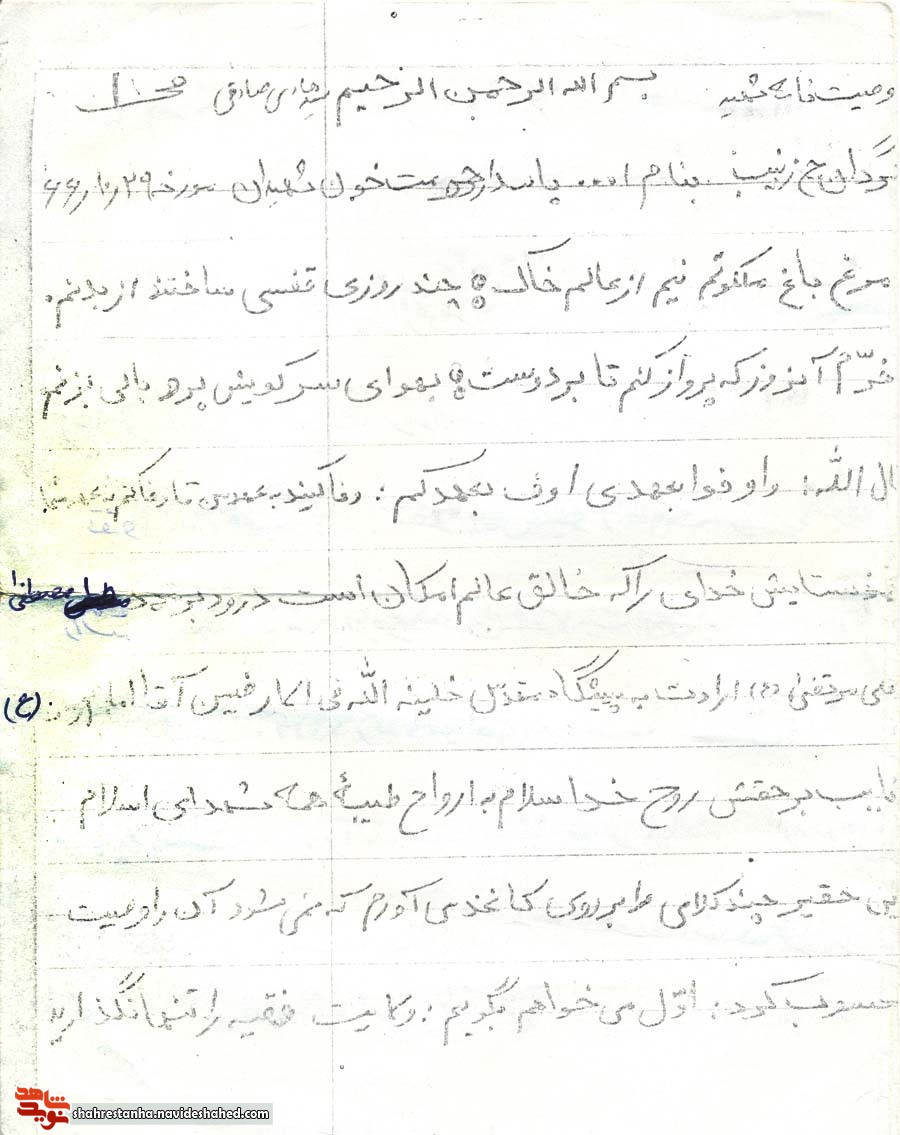 وصیت نامه شهید بسم الله الرحمن الرحیم سید هادی صادقی ص ۱
گردان ح زینب بنام ا... پاسدار حرمت خون شهیدان مورخه ۲۹ر۱۰ر۶۶
مرغ باغ ملکوتم نیم از عالم خاک چند روزی قفسی ساختند از بدنم.
خرّم آنروز که پرواز کنم تا بر دوست بهوای سر کویش پر و بالی بزنم
ال الله: و اوفوا بعهدی اوف بعهدکم: وفا کنید به عهد من تا وفا کنم به عهد شما
ستایش خدای را که خالق عالم امکان است درود بر محمد مصطفی
علی مرتضی (ع) ارادت به پیشگاه مقدس خلیفه الله فی الارضین آقا امام زمان (ع)
نایب بر حقش روح خدا سلام به ارواح طیبهٔ همه شهدای اسلام
این حقیر چند کلامی را بر روی کاغذ می آورم که نمی شود آن را وصیت
حسوب کرد: اوّل می خواهم بگویم: ولایت فقیه را تنها نگذارید
شاهد
نوید
shahrestanha.navideshahed.com